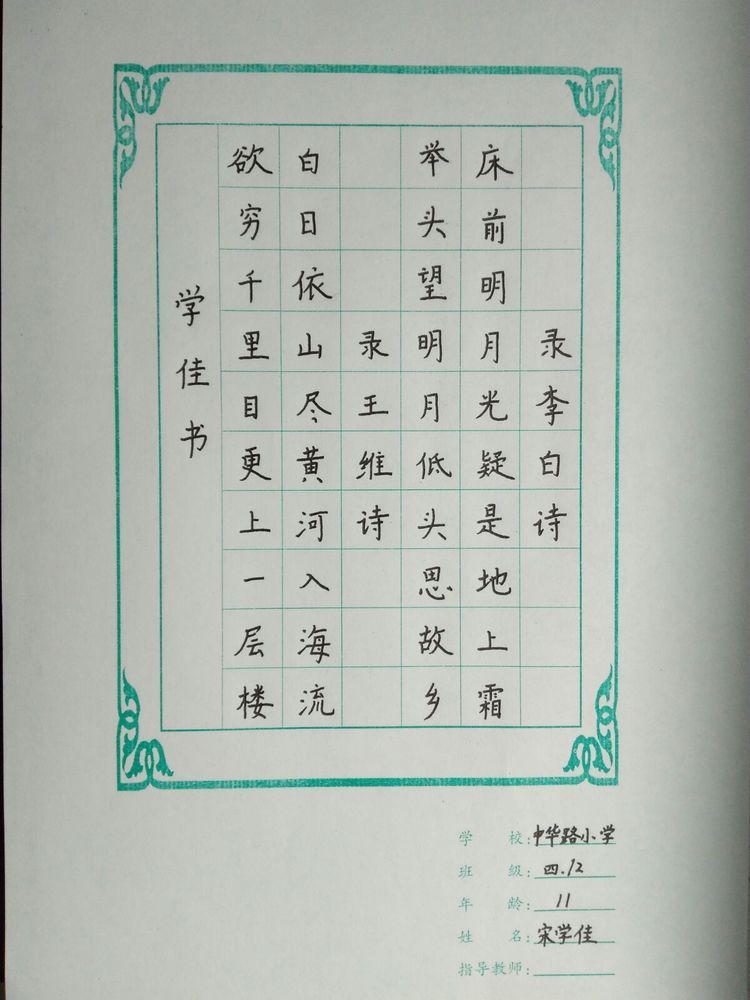 录李白诗
床前明月光疑是地上霜
举头望明月低头思故乡
录王维诗
白日依山尽黄河入海流
欲穷千里目更上一层楼
学佳书
学校:中华路小学
班级:四.12
年龄:11
姓名:宋学佳
指导教师: